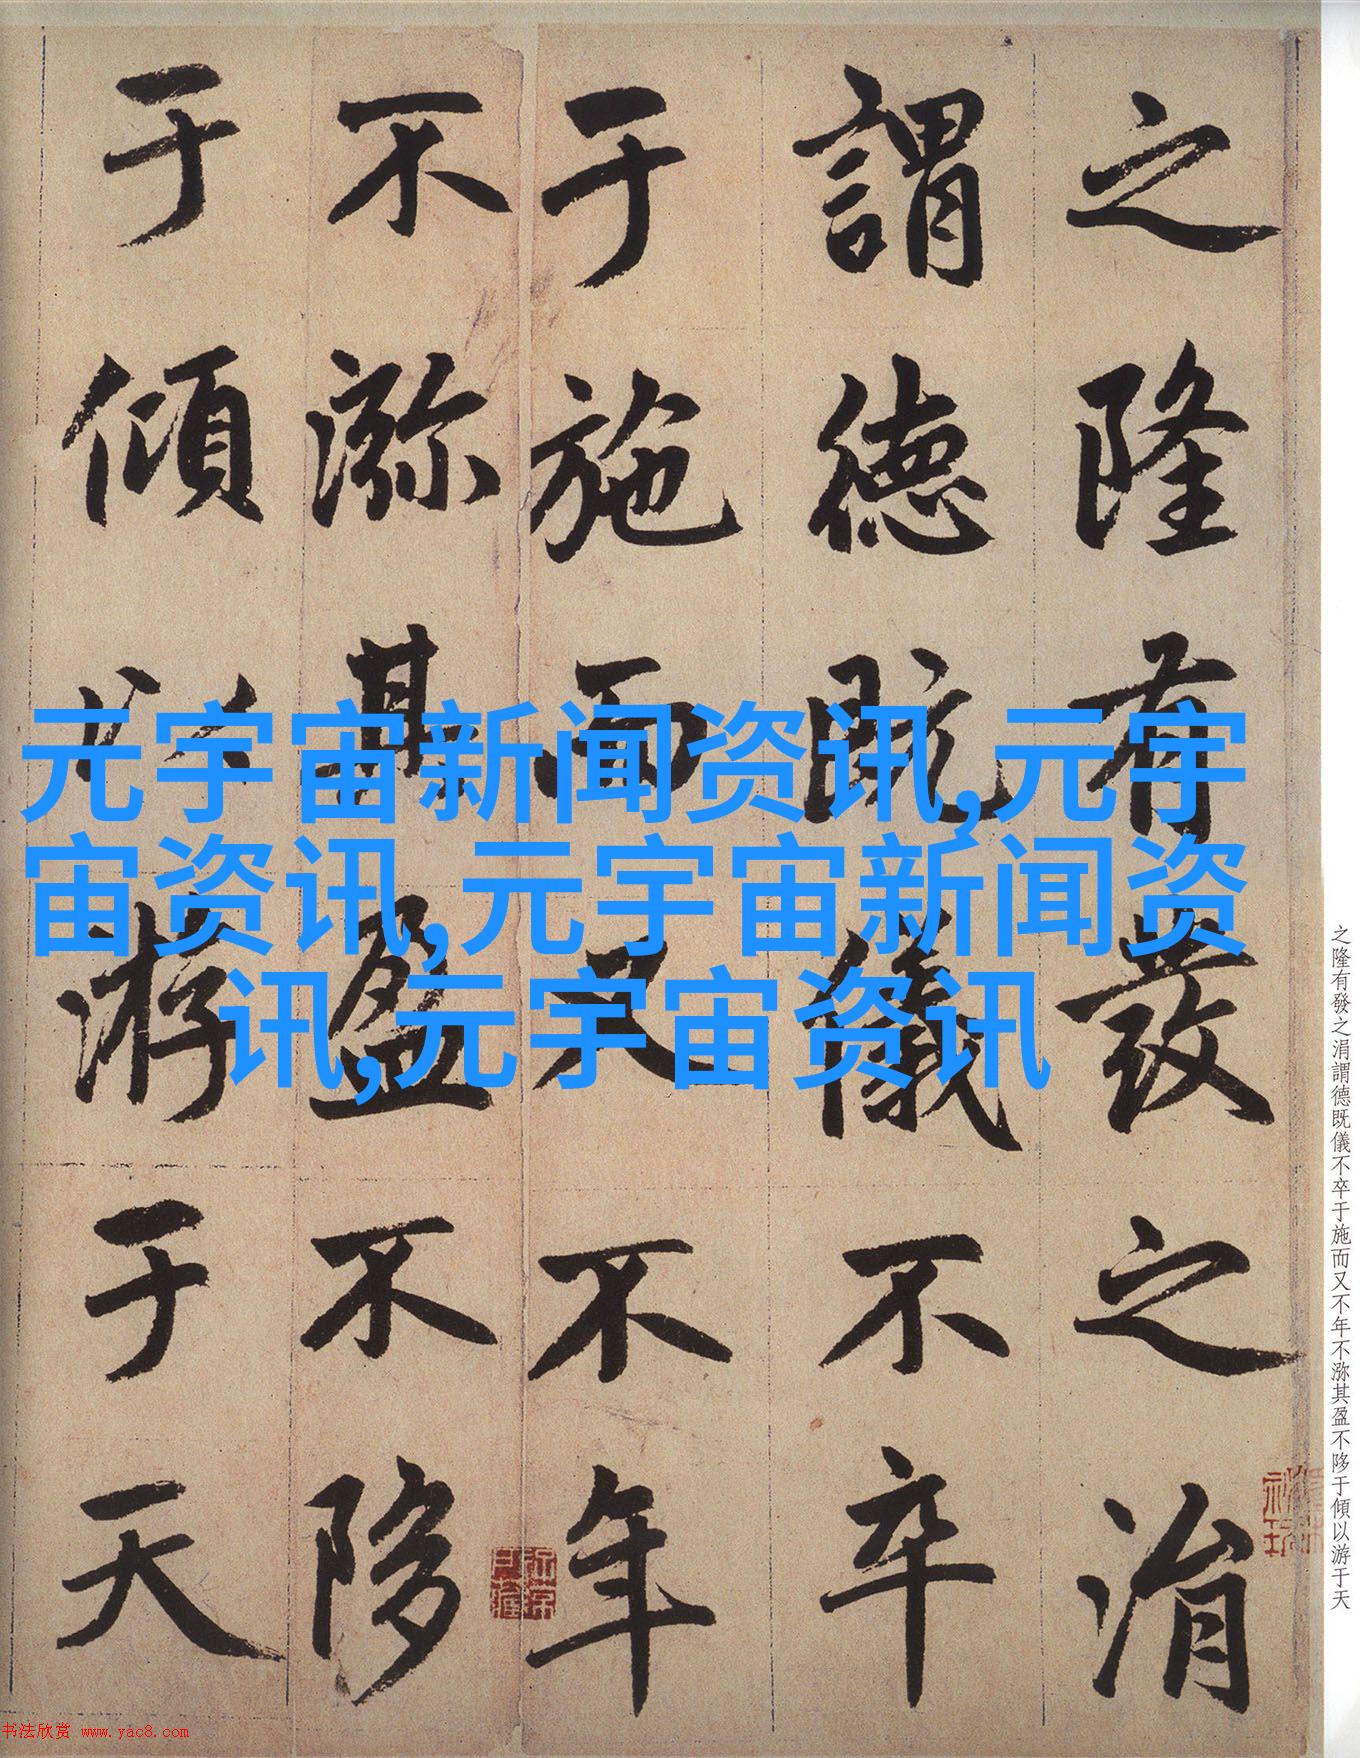 之隆有發之涓
謂德既儀不卒
于施而又不年
不㳽其盈不陊
于傾以游于天
元宇宙新闻资讯,元宇
宙资讯,元宇宙新闻资
讯,元宇宙资讯
之隆有發之涓謂德既儀不卒于施而又不年不㳽其盈不陊于傾以游于天
书法欣赏 www.yac8.com